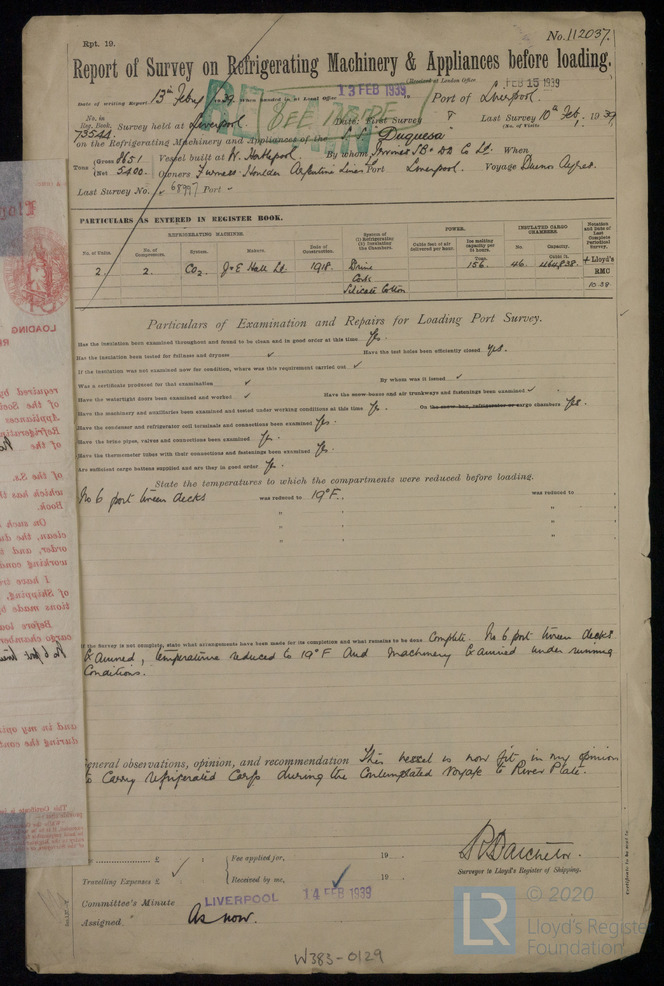 Rpt. 19.
No. 112037.
Report of Survey on Refrigerating Machinery & Appliances before loading.
(Received at London Office FEB 15 1939
Date of writing Report 13th Feby 1939 When handed in at Local Office 13 FEB 1939 Port of Liverpool.
No. in Reg. Book. 73544 Survey held at Liverpool. Date: First Survey Last Survey 10th Feb, 1939
(No. of Visits 1.)
on the Refrigerating Machinery and Appliances of the S.S. "Duquesa"
Tons (Gross 8651 Vessel built at W. Hartlepool. By whom Irvines SB & DD Co Ld. When
(Net 5400. Owners Furness-Houlder Argentine Lines Port Liverpool. Voyage Buenos Ayres.
Last Survey No. 68997 Port
PARTICULARS AS ENTERED IN REGISTER BOOK.
REFRIGERATING MACHINES. POWER. INSULATED CARGO CHAMBERS.
No. of Units. No. of Compressors. System. Makers. Date of Construction. System of (1) Refrigerating (2) Insulating the Chambers. Cubic feet of air delivered per hour. Ice melting capacity per 24 hours. No. Capacity. Notation and Date of Last Complete Periodical Survey.
Tons. Cubic ft.
2. 2. CO2. J & E Hall Ld. 1918. Brine 156. 46. 464838. + Lloyd's
Cork RMC
Silicate Cotton 10.38
Particulars of Examination and Repairs for Loading Port Survey.
Has the insulation been examined throughout and found to be clean and in good order at this time Yes.
Has the insulation been tested for fullness and dryness ✓ Have the test holes been efficiently closed Yes.
If the insulation was not examined now for condition, where was this requirement carried out ✓
Was a certificate produced for that examination ✓ By whom was it issued ✓
Have the watertight doors been examined and worked ✓ Have the snow-boxes and air trunkways and fastenings been examined ✓
Have the machinery and auxiliaries been examined and tested under working conditions at this time Yes. On the snow box, refrigerator or cargo chambers Yes.
Have the condenser and refrigerator coil terminals and connections been examined Yes.
Have the brine pipes, valves and connections been examined Yes.
Have the thermometer tubes with their connections and fastenings been examined Yes.
Are sufficient cargo battens supplied and are they in good order Yes.
State the temperatures to which the compartments were reduced before loading.
No 6 port tween decks was reduced to 19°F. was reduced to
" "
" "
" "
If the Survey is not complete, state what arrangements have been made for its completion and what remains to be done Complete. No 6 port tween decks
Examined, temperature reduced to 19°F And Machinery Examined under running
Conditions.
General observations, opinion, and recommendation This vessel is now fit in my opinion
to Carry refrigerated Cargo during the Contemplated Voyage to River Plate.
£ : Fee applied for, 19
Travelling Expenses £ Received by me, 19
Surveyor to Lloyd's Register of Shipping.
Committee's Minute LIVERPOOL 14 FEB 1939
Assigned As now.
W383-0129
LR © 2020
Lloyd's Register
Foundation